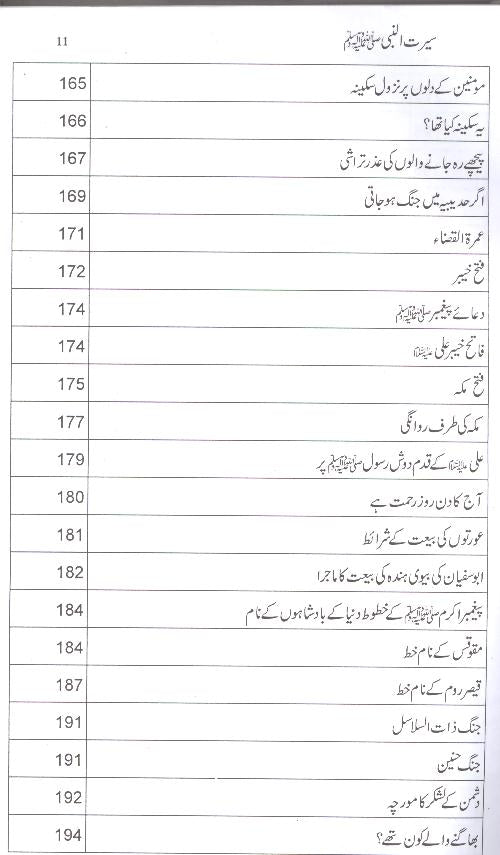 سیرت النبی ﷺ 11
مومنین کے دلوں پر نزول سکینہ 165
یہ سکینہ کیا تھا؟ 166
پیچھے رہ جانے والوں کی عذر تراشی 167
اگر حدیبیہ میں جنگ ہو جاتی 169
عمرۃ القضاء 171
فتح خیبر 172
دعائے پیغمبر ﷺ 174
فاتح خیبر علی علیہ السلام 174
فتح مکہ 175
مکہ کی طرف روانگی 177
علی علیہ السلام کے قدم دوش رسول ﷺ پر 179
آج کا دن روز رحمت ہے 180
عورتوں کی بیعت کے شرائط 181
ابوسفیان کی بیوی ہندہ کی بیعت کا ماجرا 182
پیغمبر اکرم ﷺ کے خطوط دنیا کے بادشاہوں کے نام 184
مقوقس کے نام خط 184
قیصر روم کے نام خط 187
جنگ ذات السلاسل 191
جنگ حنین 191
دشمن کے لشکر کا مورچہ 192
بھاگنے والے کون تھے؟ 194